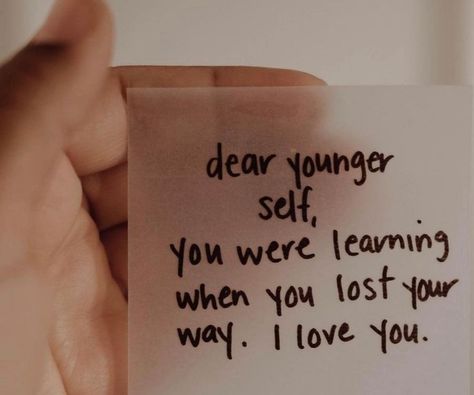 dear younger
self,
you were learning
when you lost your
way. I love you.